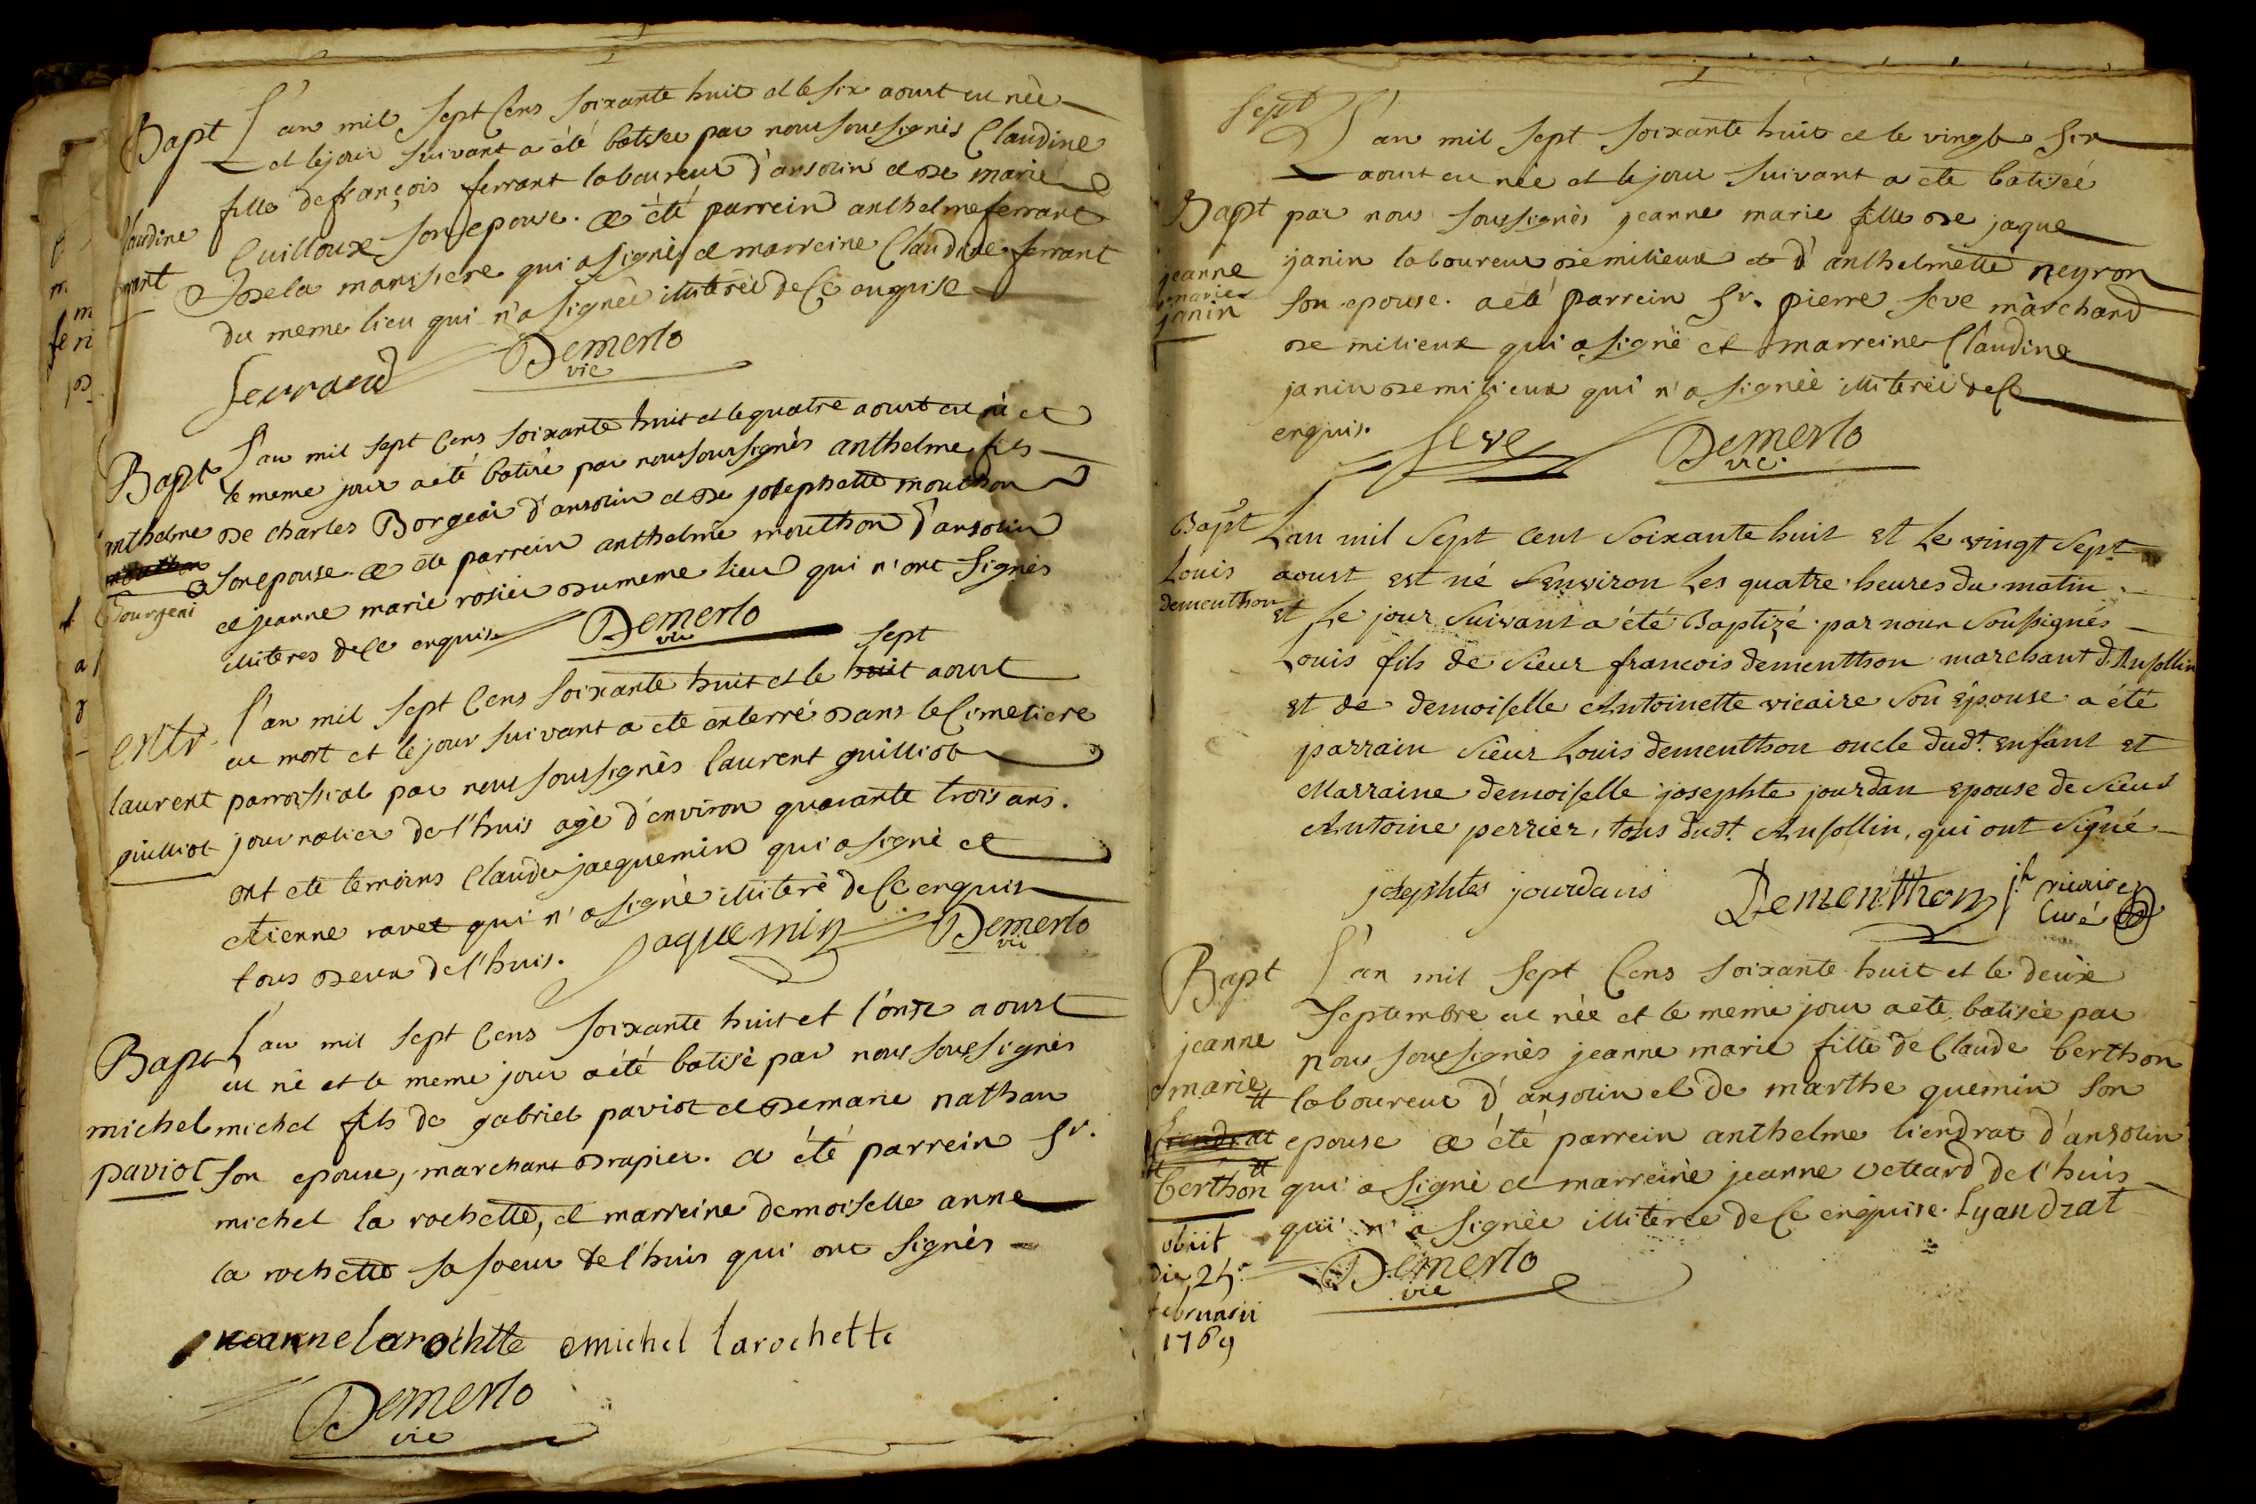 Bapt L'an mil sept cens soixante huit et le six aoust est née
et le jour suivant a été batisée par nous soussignés Claudine
fille de françois ferrant laboureur d'ansolin et de marie
Claudine Guilloux son epouse. a été parrein anthelme ferrant
de la manssiere qui a signé et marreine Claudine ferrant
du meme lieu qui n'a signée illiterée de ce enquise
Demerlo
vic
Bapt L'an mil sept cens soixante huit et le quatre aoust est né et
le meme jour a été batisé par nous soussignés anthelme fils
anthelme de charles Borgeai d'ansolin et de josephette mouthon
mouthon son epouse. a été parrein anthelme mouthon d'ansolin
Bourgeai et jeanne marie rosier du meme lieu qui n'ont signés
illiteres de ce enquis Demerlo
vic
sept
entr. L'an mil sept cens soixante huit et le huit aoust
est mort et le jour suivant a été enterré dans le cimetiere
laurent parroissial par nous soussignés laurent guilliot
guilliot journalier de l'huis agé d'environ quarante trois ans.
ont eté temoins Claude jacquemin qui a signé et
etienne ravet qui n'a signé illiteré de ce enquis
tous deux de l'huis. Jaquemin Demerlo
vic
Bapt L'an mil sept cens soixante huit et l'onze aoust
est né et le meme jour a été batisé par nous soussignés
michel michel fils de gabriel paviot et de marie nathan
paviot son epouse, marchant drapier. a été parrein sr.
michel la rochette, et marreine demoiselle anne
la rochette sa soeur de l'huis qui ont signés
anne larochtte michel larochette
Demerlo
vic
Sept
L'an mil sept soixante huit et le vingt six
aoust est née et le jour suivant a été batisée
Bapt par nous soussignés jeanne marie fille de jaque
jeanne janin laboureur de milieux et d'anthelmette neyron
marie
janin son epouse. a été parrein sr. pierre seve marchand
de milieux qui a signé et marreine Claudine
janin de milieux qui n'a signée illiterée de ce
enquis. seve Demerlo
vic.
Bapt L'an mil sept cent soixante huit et le vingt sept
Louis aoust est né environ les quatre heures du matin
dementhon et le jour suivant a été Baptizé par nous soussignés
Louis fils de sieur francois dementhon marchant d'Ansollin
et de demoiselle Antoinette vicaire son épouse a été
parrain sieur Louis dementhon oncle dudt. enfant et
Marraine demoiselle josephte jourdan epouse de sieur
Antoine perrier, tous dudt. Ansollin, qui ont signé
josephtes jourdans Dementhon
curé
Bapt L'an mil sept cens soixante huit et le deux
septembre est née et le meme jour a été batisée par
jeanne nous soussignés jeanne marie fille de Claude berthon
marie laboureur d'ansolin et de marthe quemin son
liendrat epouse a été parrein anthelme liendrat d'ansolin
berthon qui a signé et marreine jeanne vettard de l'huis
qui n'a signée illiterée de ce enquise. Lyandrat
obiit
die 24a Demerlo
februarii vic
1769